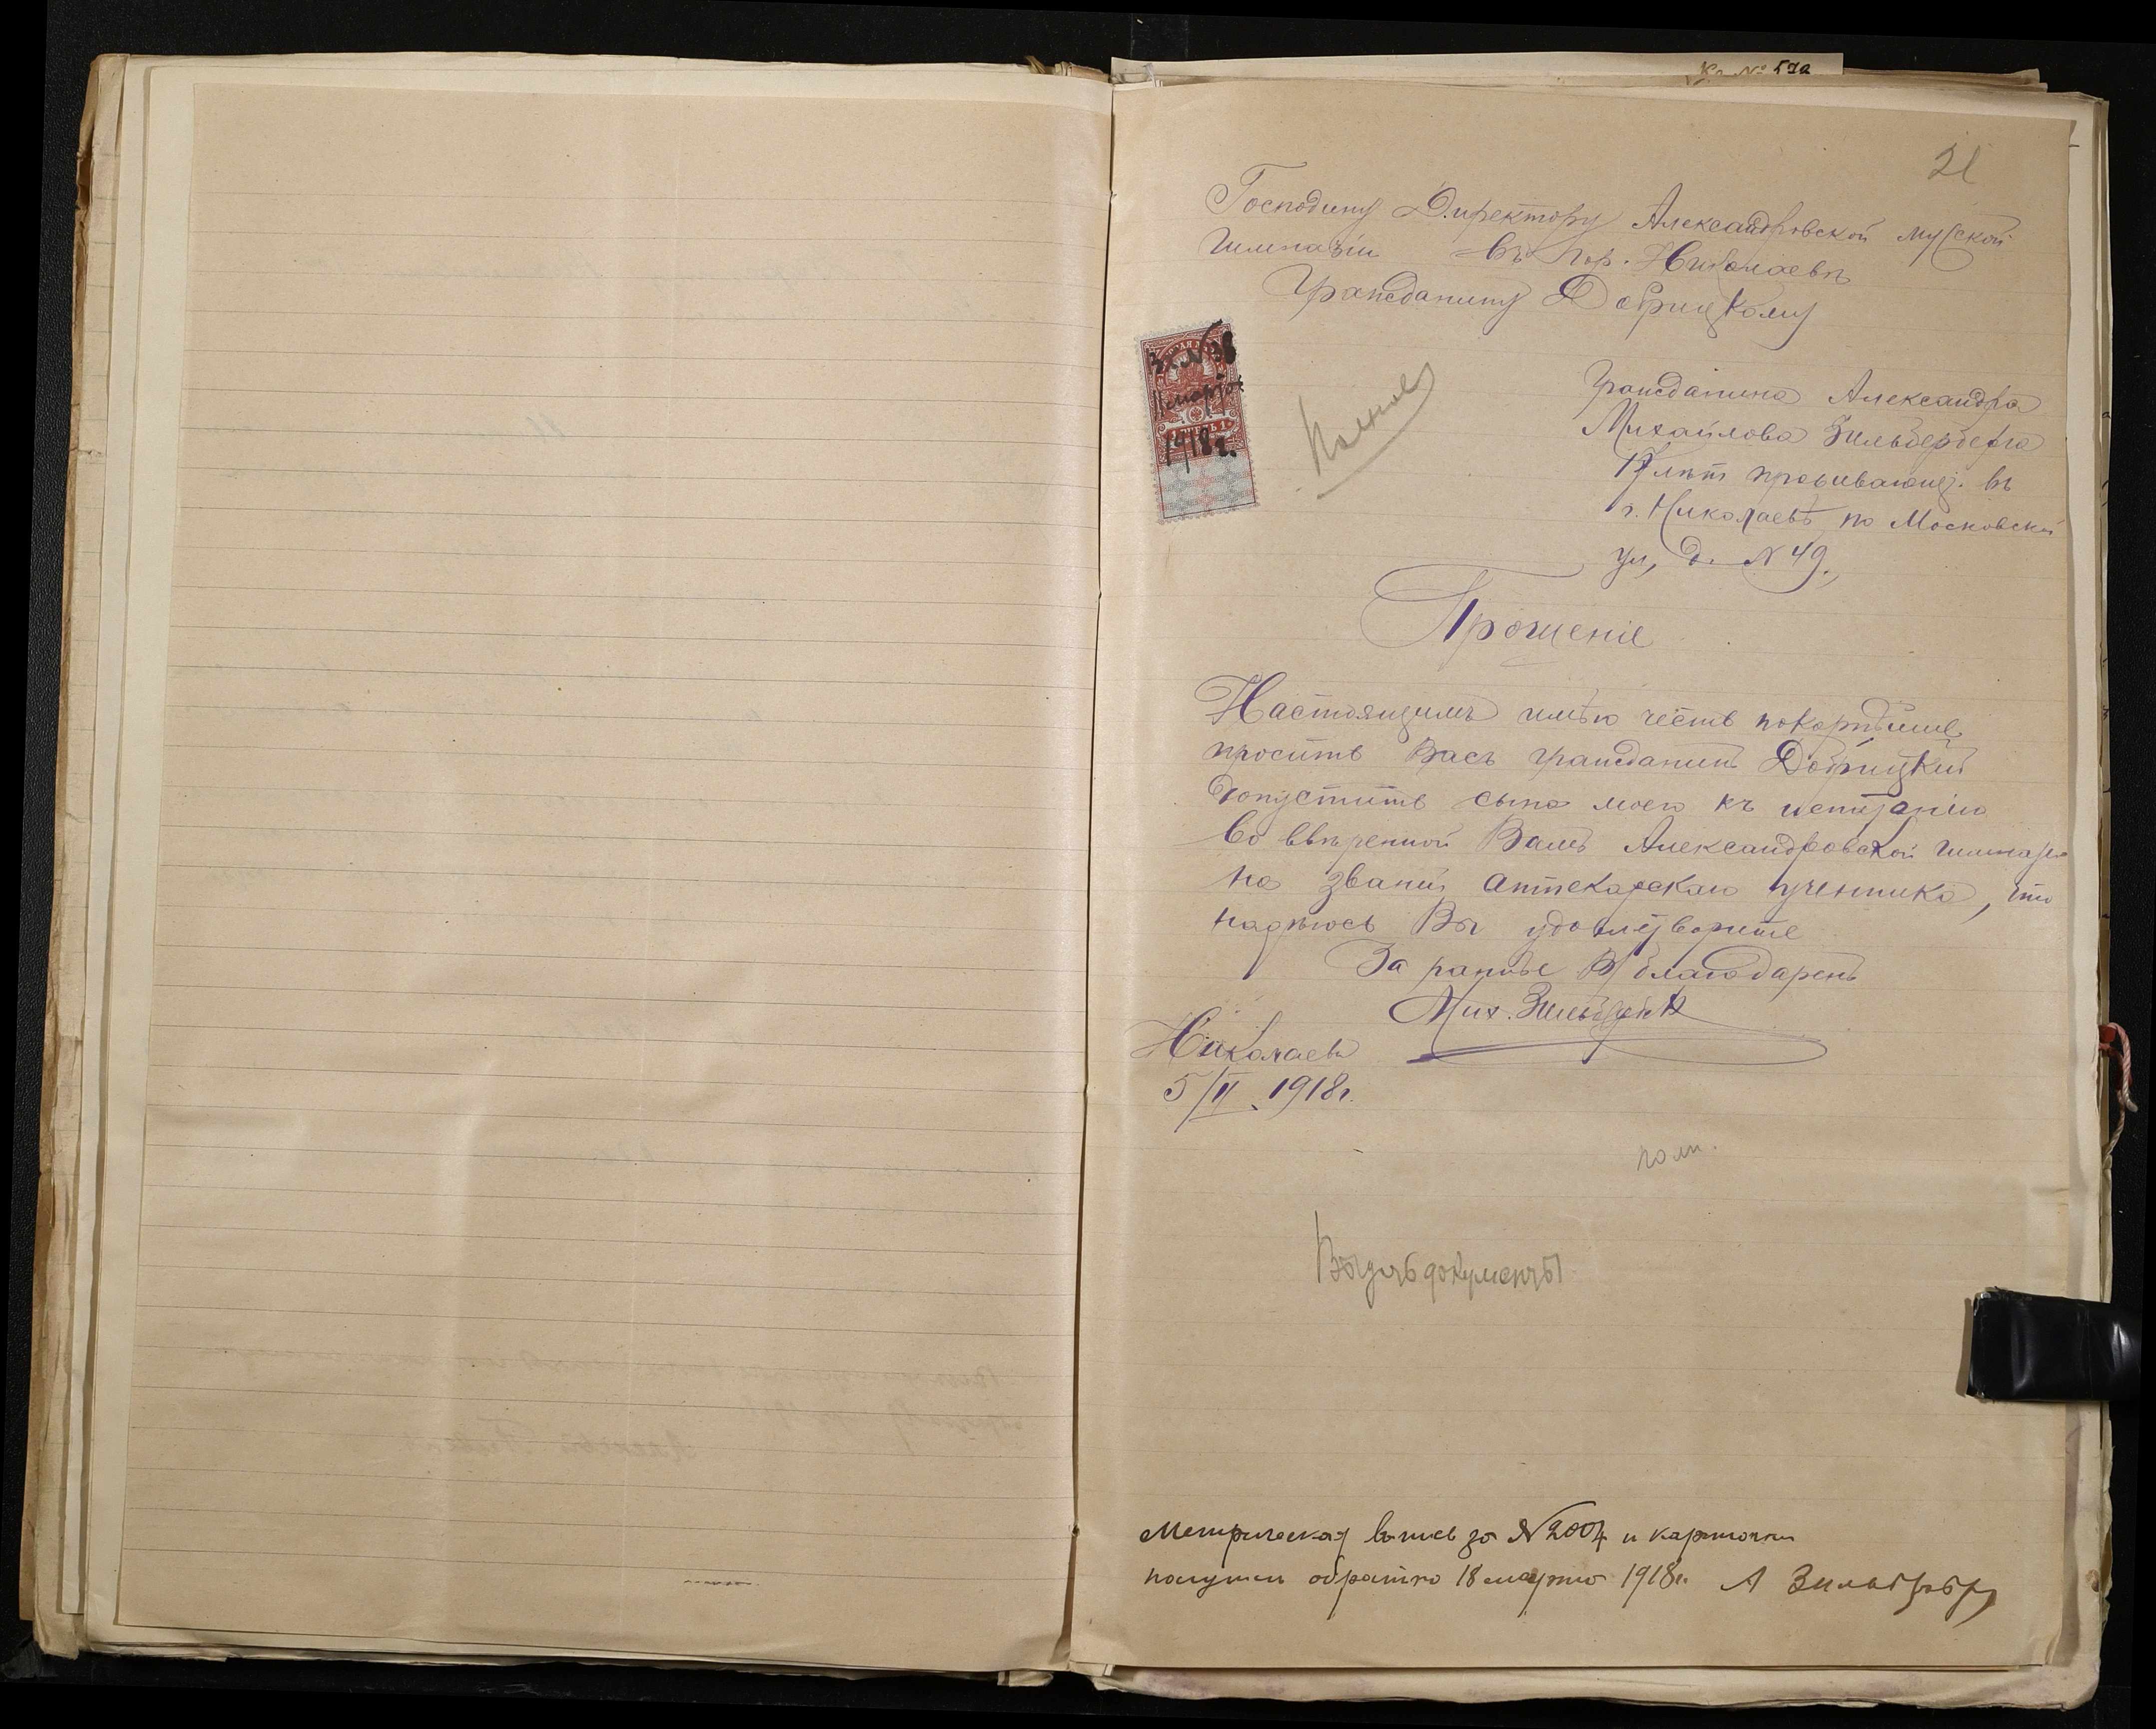 Кв. № 572
21
Господину Директору Александровской мужской
Гимназіи въ гор. Николаевѣ
Гражданину Добрицкому
Вх. № 38
11 марта
1918 г.
Гражданина Александра
Михайлова Зильберберга
17 лѣт проживающ. въ
г. Николаевѣ по Московской
ул, д. N 49.
Прошеніе
Настоящимъ имѣю честь покорнѣйше
просить Васъ гражданинъ Добрицкій
допустить сына моего къ испытанію
во ввѣренной Вамъ Александровской гимназіи
на званіе аптекарскаго ученика, что
надѣюсь Вы удовлетворите
За ранѣе В/ благодаренъ
Мих. Зильберберг
Николаевъ
5/II. 1918 г.
Выдать документы
Метрическая выпись за № 2004 и карточки
получил обратно 18 марта 1918 г. А Зильберберг